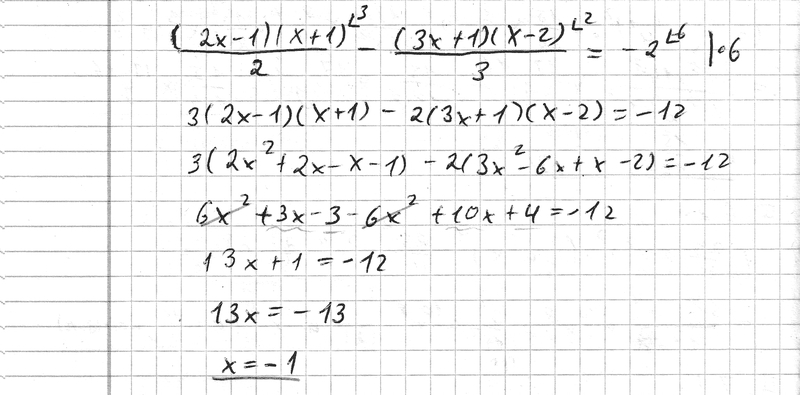 (2x-1)(x+1)∟3/2 - (3x+1)(x-2)∟2/3 = -2∟6 |·6
3(2x-1)(x+1) - 2(3x+1)(x-2) = -12
3(2x²+2x-x-1) - 2(3x²-6x+x-2) = -12
6x²+3x-3-6x²+10x+4=-12
13x+1=-12
13x=-13
x=-1